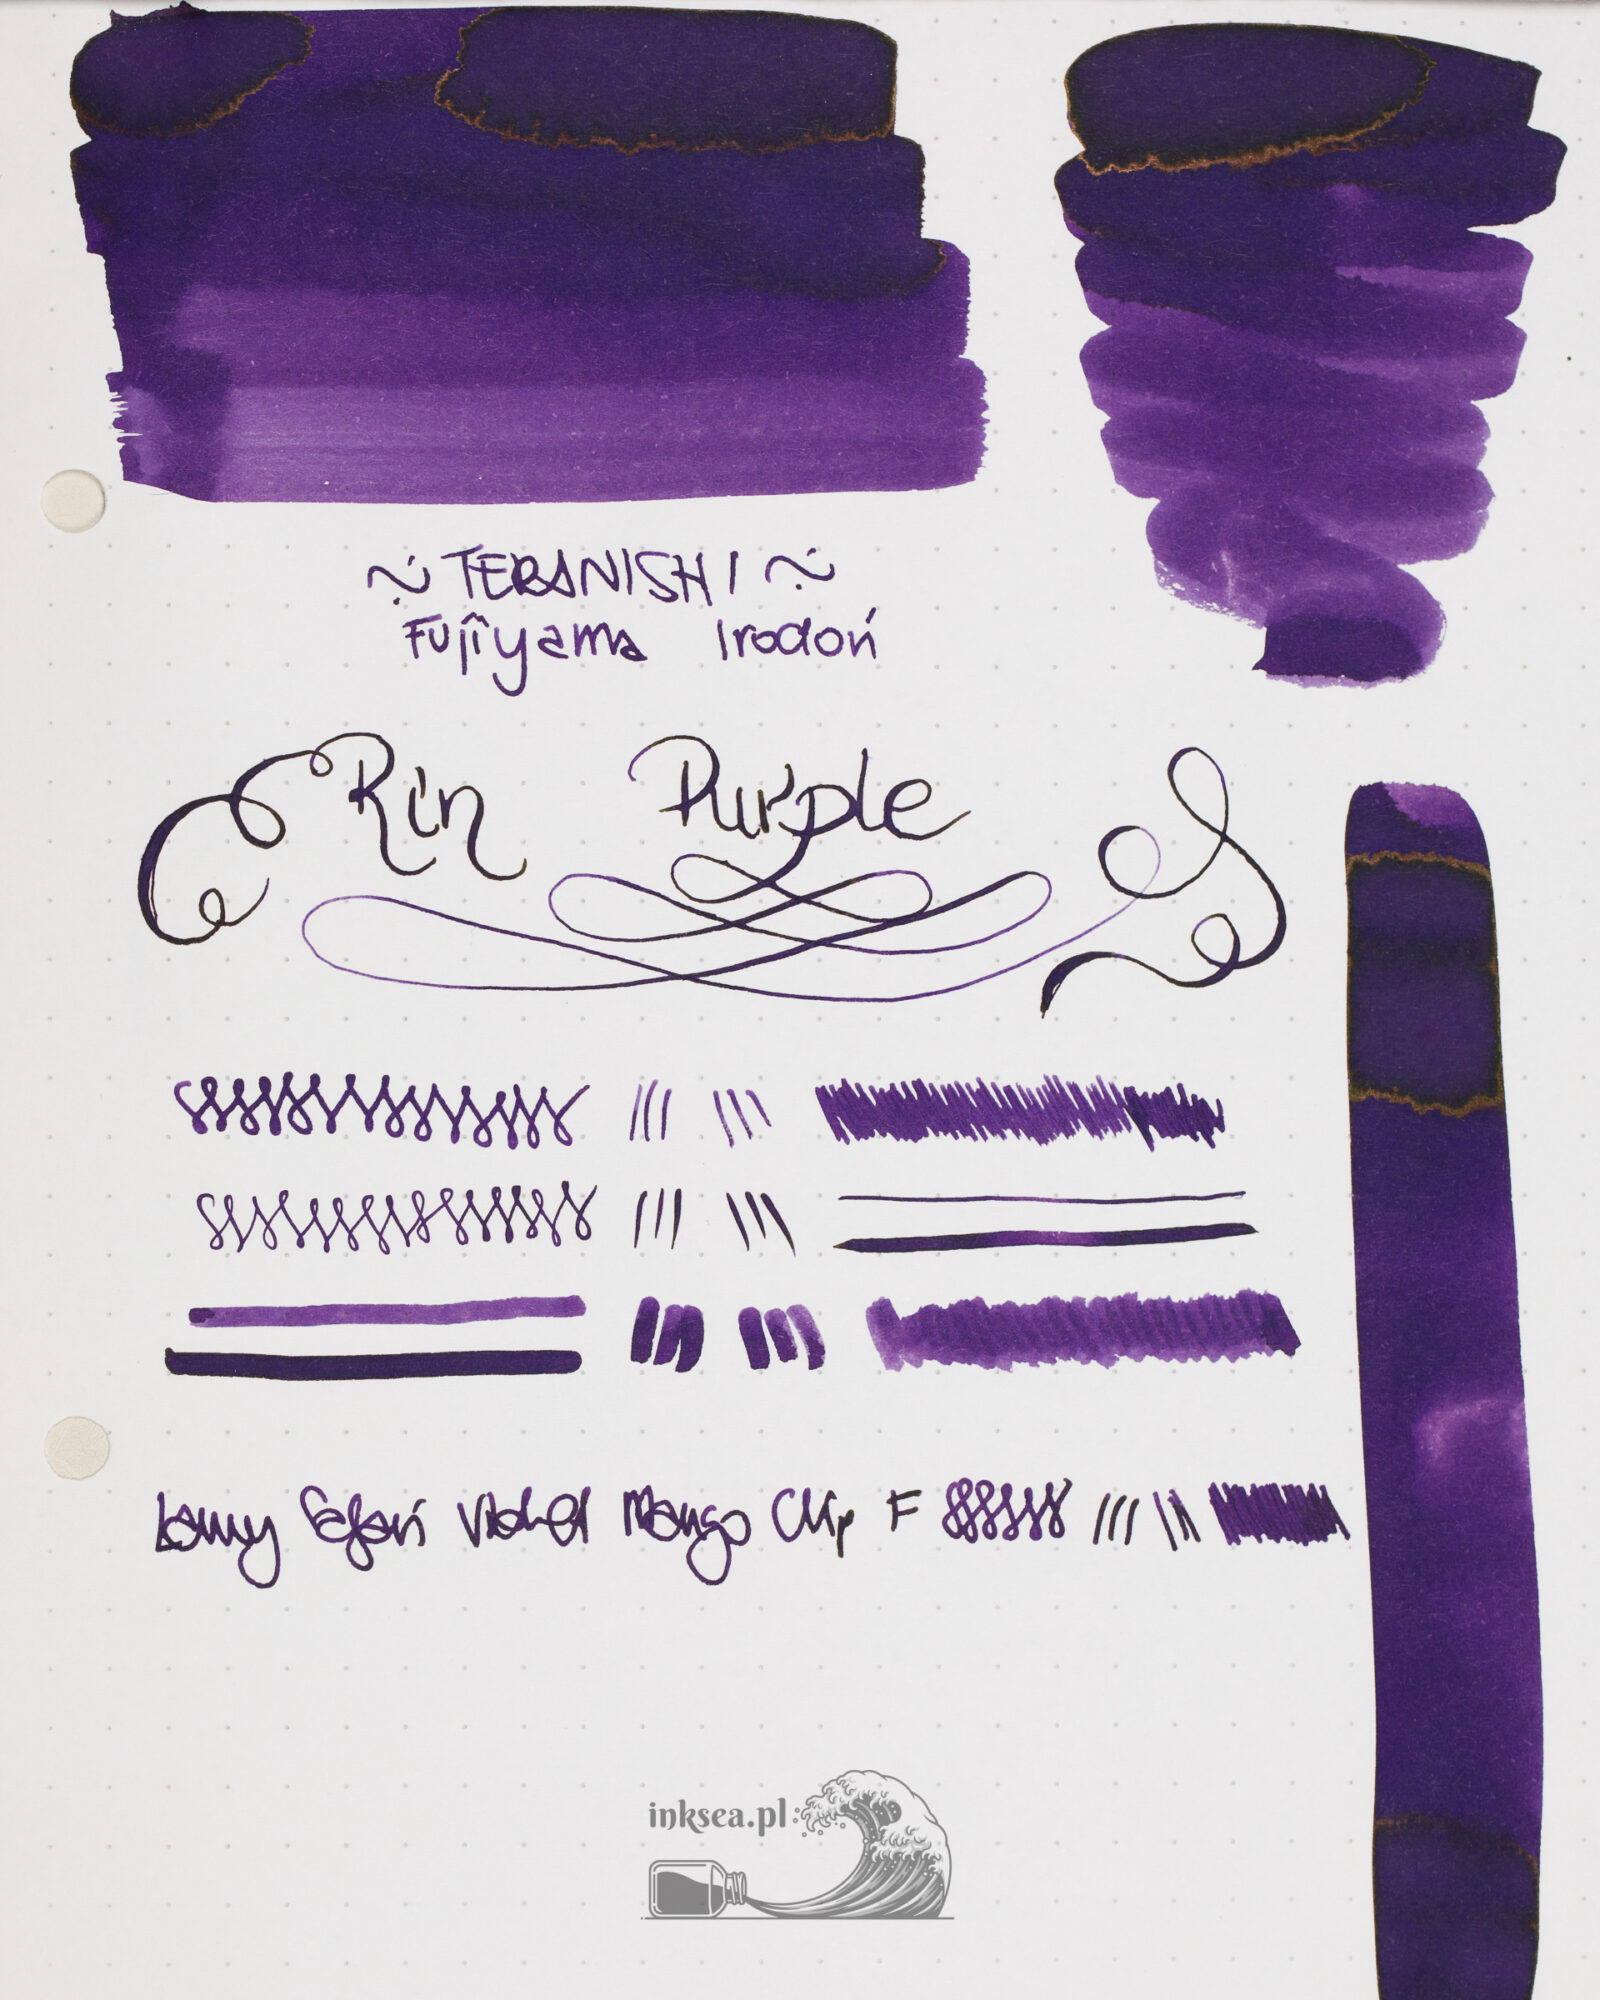 ~ TERANISHI ~
Fujiyama Irodori
Rin Purple
Lamy Safari Violet Mango Clip F
inksea.pl